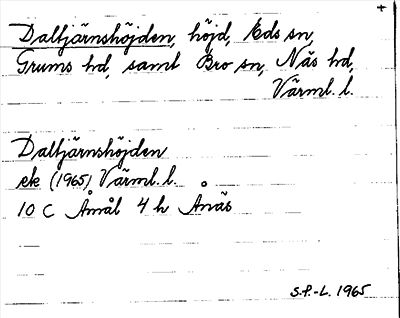 +
Daltjärnshöjden, höjd, Eds sn,
Grums hd, samt Bro sn, Näs hd,
Värml. l.
Daltjärnshöjden
ek (1965) Värml. l.
10 C Åmål 4 h Ånäs
S.P.-L. 1965